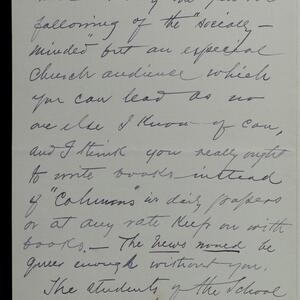 following of the "socially-
minded" but an especial
Church audience which
you can lead as no
one else I know of can,
and I think you really ought
to write books instead
of "Columns" in daily papers
or at any rate keep on with
books. – The News would be
queer enough without you.
The students of the School